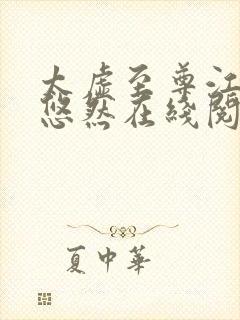 太虚至尊江
悠然在线阅
夏中华